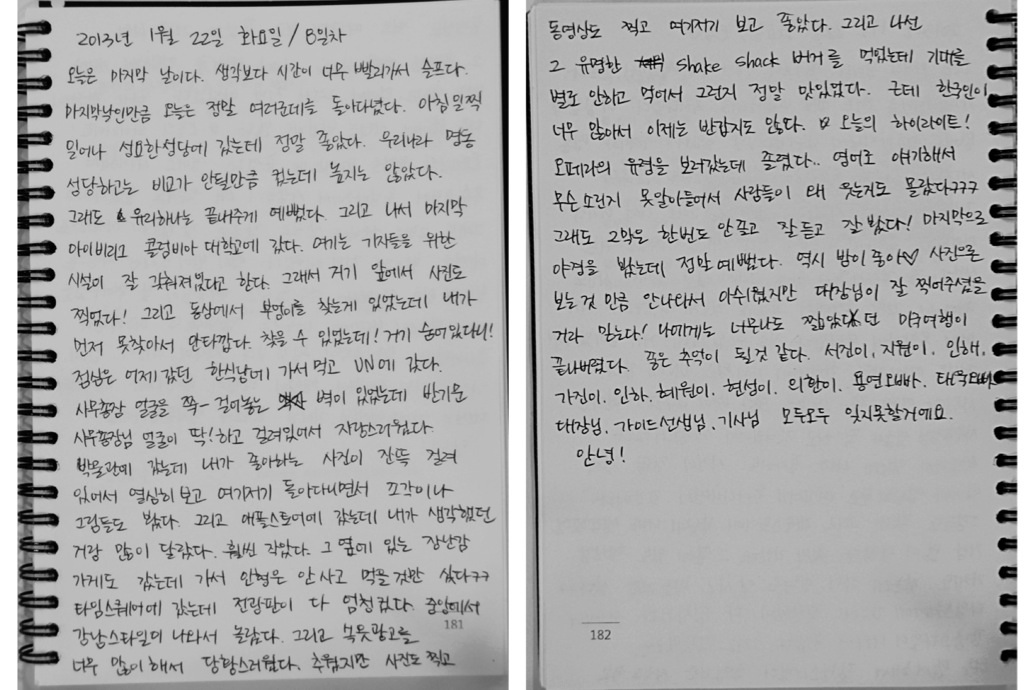 2013년 1월 22일 화요일 / 8일차
오늘은 마지막 날이다. 생각보다 시간이 너무 빨리가서 슬프다.
마지막날인만큼 오늘은 정말 여러군데를 돌아다녔다. 아침일찍
일어나 성요한성당에 갔는데 정말 좋았다. 우리나라 명동
성당하고는 비교가 안될만큼 컸는데 높지는 않았다.
그래도 유리하나는 끝내주게 예뻤다. 그리고 나서 마지막
아이비리그 콜럼비아 대학교에 갔다. 여기는 기자들을 위한
시설이 잘 갖춰져있다고 한다. 그래서 거기 앞에서 사진도
찍었다! 그리고 동상에서 부엉이를 찾는게 있었는데 내가
먼저 못찾아서 안타깝다. 찾을 수 있었는데! 거기 숨어있다니!
점심은 어제 갔던 한식남에 가서 먹고 UN에 갔다.
사무총장 얼굴을 쭉- 걸어놓는 벽이 있었는데 반기문
사무총장님 얼굴이 딱! 하고 걸려있어서 자랑스러웠다
박물관에 갔는데 내가 좋아하는 사진이 잔뜩 걸려
있어서 열심히 보고 여기저기 돌아다니면서 조각이나
그림들도 봤다. 그리고 애플스토어에 갔는데 내가 생각했던
거랑 많이 달랐다. 훨씬 작았다. 그 옆에 있는 장난감
가게도 갔는데 가서 인형은 안사고 먹을것만 샀다ㅋㅋ
타임스퀘어에 갔는데 전광판이 다 엄청컸다. 중앙에서
강남스타일이 나와서 놀랐다. 그리고 속옷광고를
너무 많이해서 당황스러웠다. 추웠지만 사진도 찍고
181
동영상도 찍고 여기저기 보고 좋았다. 그리고 나선
그 유명한 shake shack 버거를 먹었는데 기대를
별로 안하고 먹어서 그런지 정말 맛있었다. 근데 한국인이
너무 많아서 이제는 반갑지도 않다. 오늘의 하이라이트!
오페라의 유령을 보러갔는데 졸렸다.. 영어로 얘기해서
무슨소린지 못알아들어서 사람들이 왜 웃는지도 몰랐다ㅋㅋㅋ
그래도 2막은 한번도 안졸고 잘 듣고 잘 봤다! 마지막으로
야경을 봤는데 정말 예뻤다. 역시 밤이 좋아♡ 사진으론
보는 것 만큼 안나와서 아쉬웠지만 대장님이 잘 찍어주셨을
거라 믿는다! 나에게는 너무나도 짧았던 미국여행이
끝나버렸다. 좋은 추억이 될것 같다. 서진이, 지원이, 인해,
가진이, 인하, 혜원이, 현성이, 의환이, 용연오빠,
대장님, 가이드선생님, 기사님 모두모두 잊지못할거예요.
안녕!
182